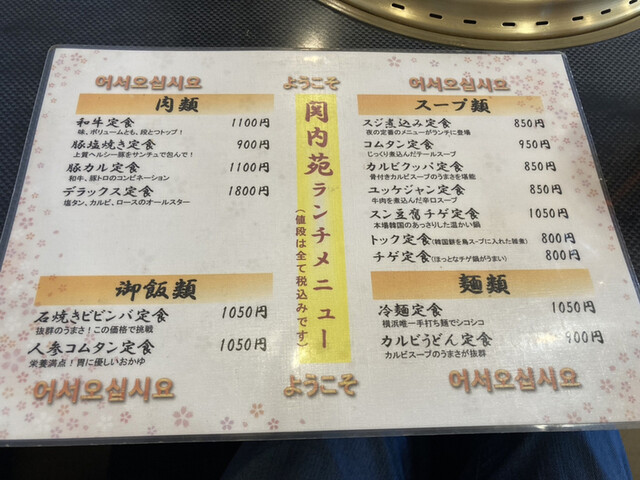 어서오십시요
ようこそ
어서오십시요
肉類
和牛定食 1100円
味、ボリュームとも、段とつトップ！
豚塩焼き定食 900円
上質ヘルシー豚をサンチュで包んで！
豚カル定食 1100円
和牛、豚トロのコンビネーション
デラックス定食 1800円
塩タン、カルビ、ロースのオールスター
御飯類
石焼きビビンバ定食 1050円
抜群のうまさ！この価格で挑戦
人参コムタン定食 1050円
栄養満点！胃に優しいおかゆ
関内苑ランチメニュー
（値段は全て税込みです）
スープ類
スジ煮込み定食 850円
夜の定番のメニューがランチに登場
コムタン定食 950円
じっくり煮込んだテールスープ
カルビクッパ定食 850円
骨付きカルビスープのうまさを堪能
ユッケジャン定食 850円
牛肉を煮込んだ辛口スープ
スン豆腐チゲ定食 1050円
本場韓国のあっさりした温かい鍋
トック定食(韓国餅を鳥スープに入れた雑煮) 800円
チゲ定食(ほっとなチゲ鍋がうまい) 800円
麺類
冷麺定食 1050円
横浜唯一手打ち麺でシコシコ
カルビうどん定食 900円
カルビスープのうまさが抜群
어서오십시요
ようこそ
어서오십시요